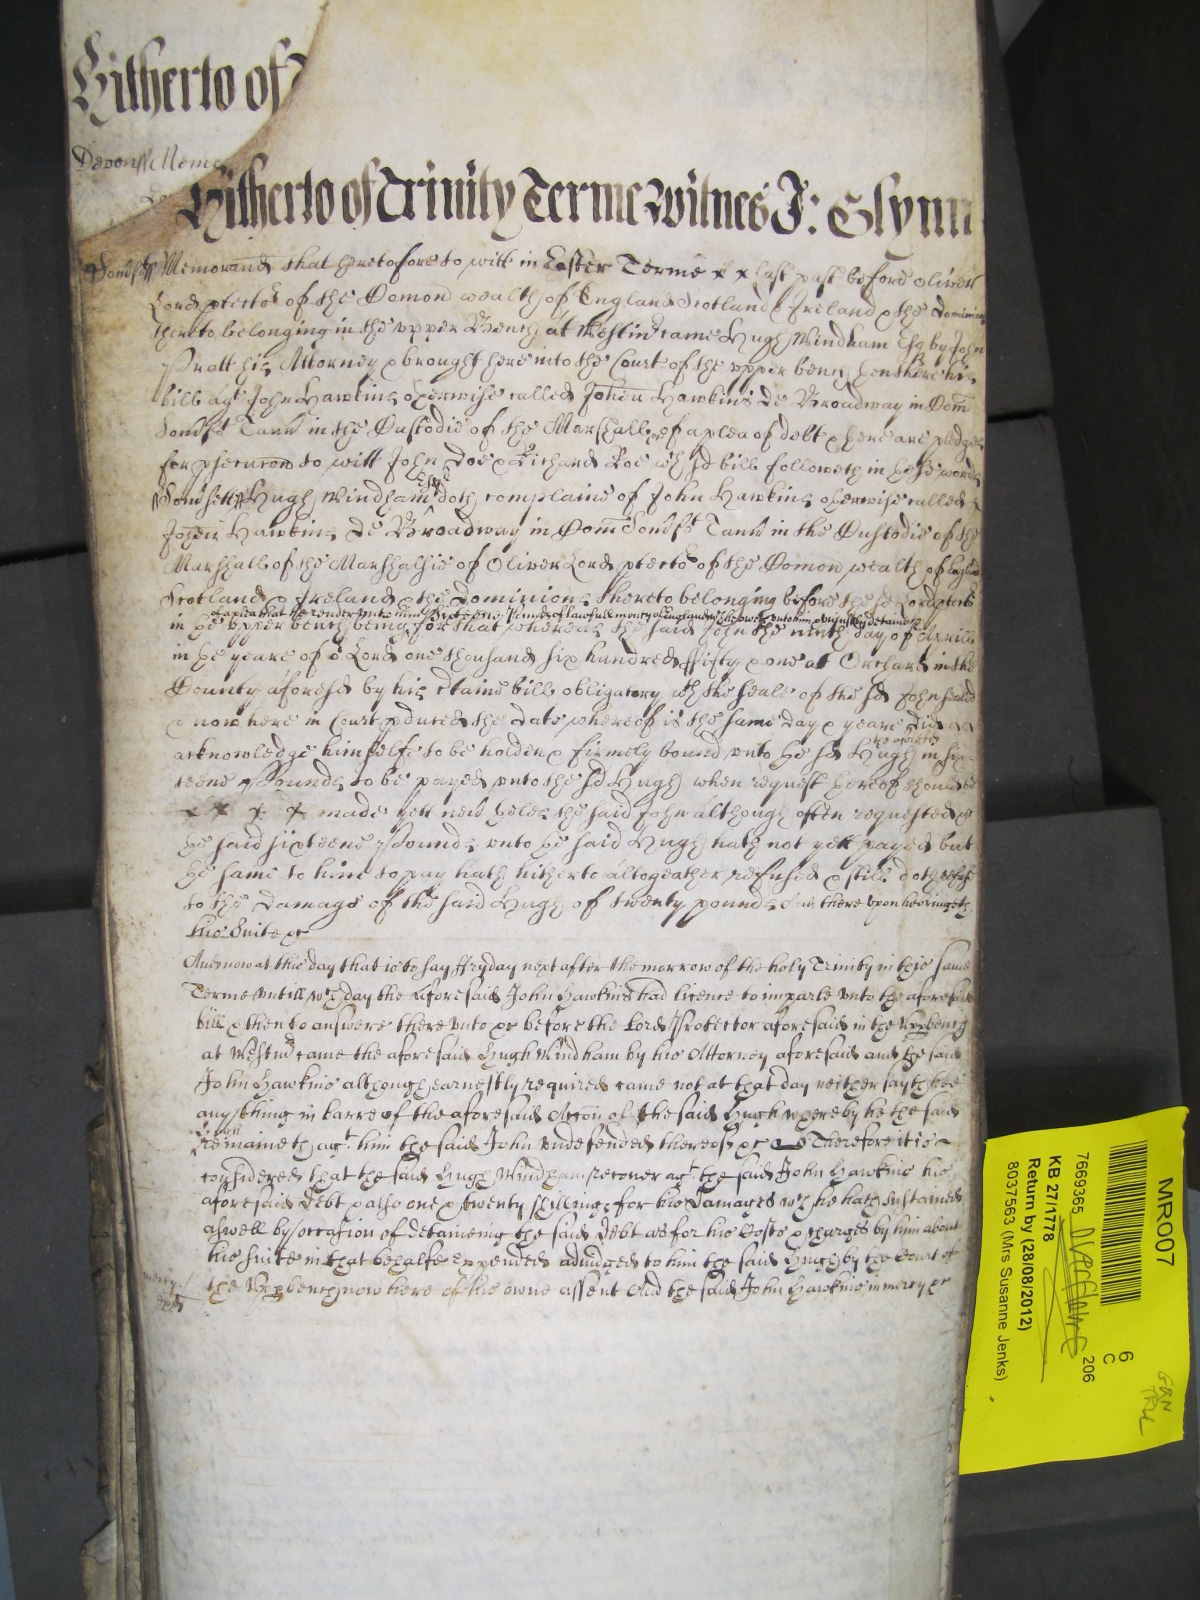 Hitherto of T
Devons Memo
Hitherto of Trinity Terme Witnes J: Glynn
Somst Memorand that heretofore to witt in Easter Terme x x last past before Oliver
Lord ptector of the Comon wealth of England Scotland & Ireland & the Dominions
thereto belonging in the upper Bench at Westmr came Hugh Windham Esq by John
Pratt his Attorney & brought here into the Court of the upper bench then there his
bill agt John Hawkins otherwise called John Hawkins de Broadway in Com
Somst Tann in the Custodie of the Marshall &c of a plea of debt & there are pledges
for psecucon to witt John Doe & Richard Roe wch sd bill followeth in these words
Somsett Hugh Windham Esqr doth complaine of John Hawkins otherwise called
John Hawkins de Broadway in Com Somst Tann in the Custodie of the
Marshall of the Marshalsie of Oliver Lord ptector of the Comon wealth of England
Scotland & Ireland & the Dominions thereto belonging before the sd Lord ptector
of a plea that he render unto him Sixteene Pounds of lawfull money of England wch he oweth unto him & unjustly detaineth
in the upper bench being for that whereas the said John the ninth day of Aprill
in the yeare of or Lord one thousand six hundred ffifty & one at Orchard in the
County aforesd by his ctaine bill obligatory wth the seale of the sd John sealed
& now here in Court pduced the date whereof is the same day & yeare did
acknowledge himselfe to be holden & firmely bound unto the sd Hugh in the aforesd six
teene Pounds to be payed unto the sd Hugh when request thereof should be
x x x x made yett neverthelesse the said John although often requested &c
the said sixteene Pounds unto the said Hugh hath not yett payed but
the same to him to pay hath hitherto altogeather refused & still doth refuse
to the damage of the said Hugh of twenty pounds And there upon hee bringeth
his Suite &c
And now at this day that is to say ffryday next after the morrow of the holy Trinity in this same
Terme untill wch day the Aforesaid John Hawkins had licence to imparle unto the aforesaid
bill & then to answere there unto &c before the Lord Protector aforesaid in the Upp bench
at Westmr came the aforesaid Hugh Windham by his Attorney aforesaid and the said
John Hawkins although earnestly required came not at that day neither sayth hee
any thing in barre of the aforesaid Accon of the said Hugh whereby he the said
Hugh
remaineth agt him the said John undefended thereof &c Therefore it is
considered that the said Hugh Windham recover agt the said John Hawkins his
aforesaid Debt & also one & twenty shillings for his Damages wch he hath sustained
aswell by occasion of detaineing the said Debt as for his Costs & charges by him about
his Suite in that behalfe expended adiudged to him the said Hugh by the Court of
the Upp bench now here of his owne assent And the said John Hawkins in mercy &c
mercy
MR007
7669365
KB 27/1778
Return by (28/08/2012)
8037563 (Mrs Susanne Jenks)
6
C
206